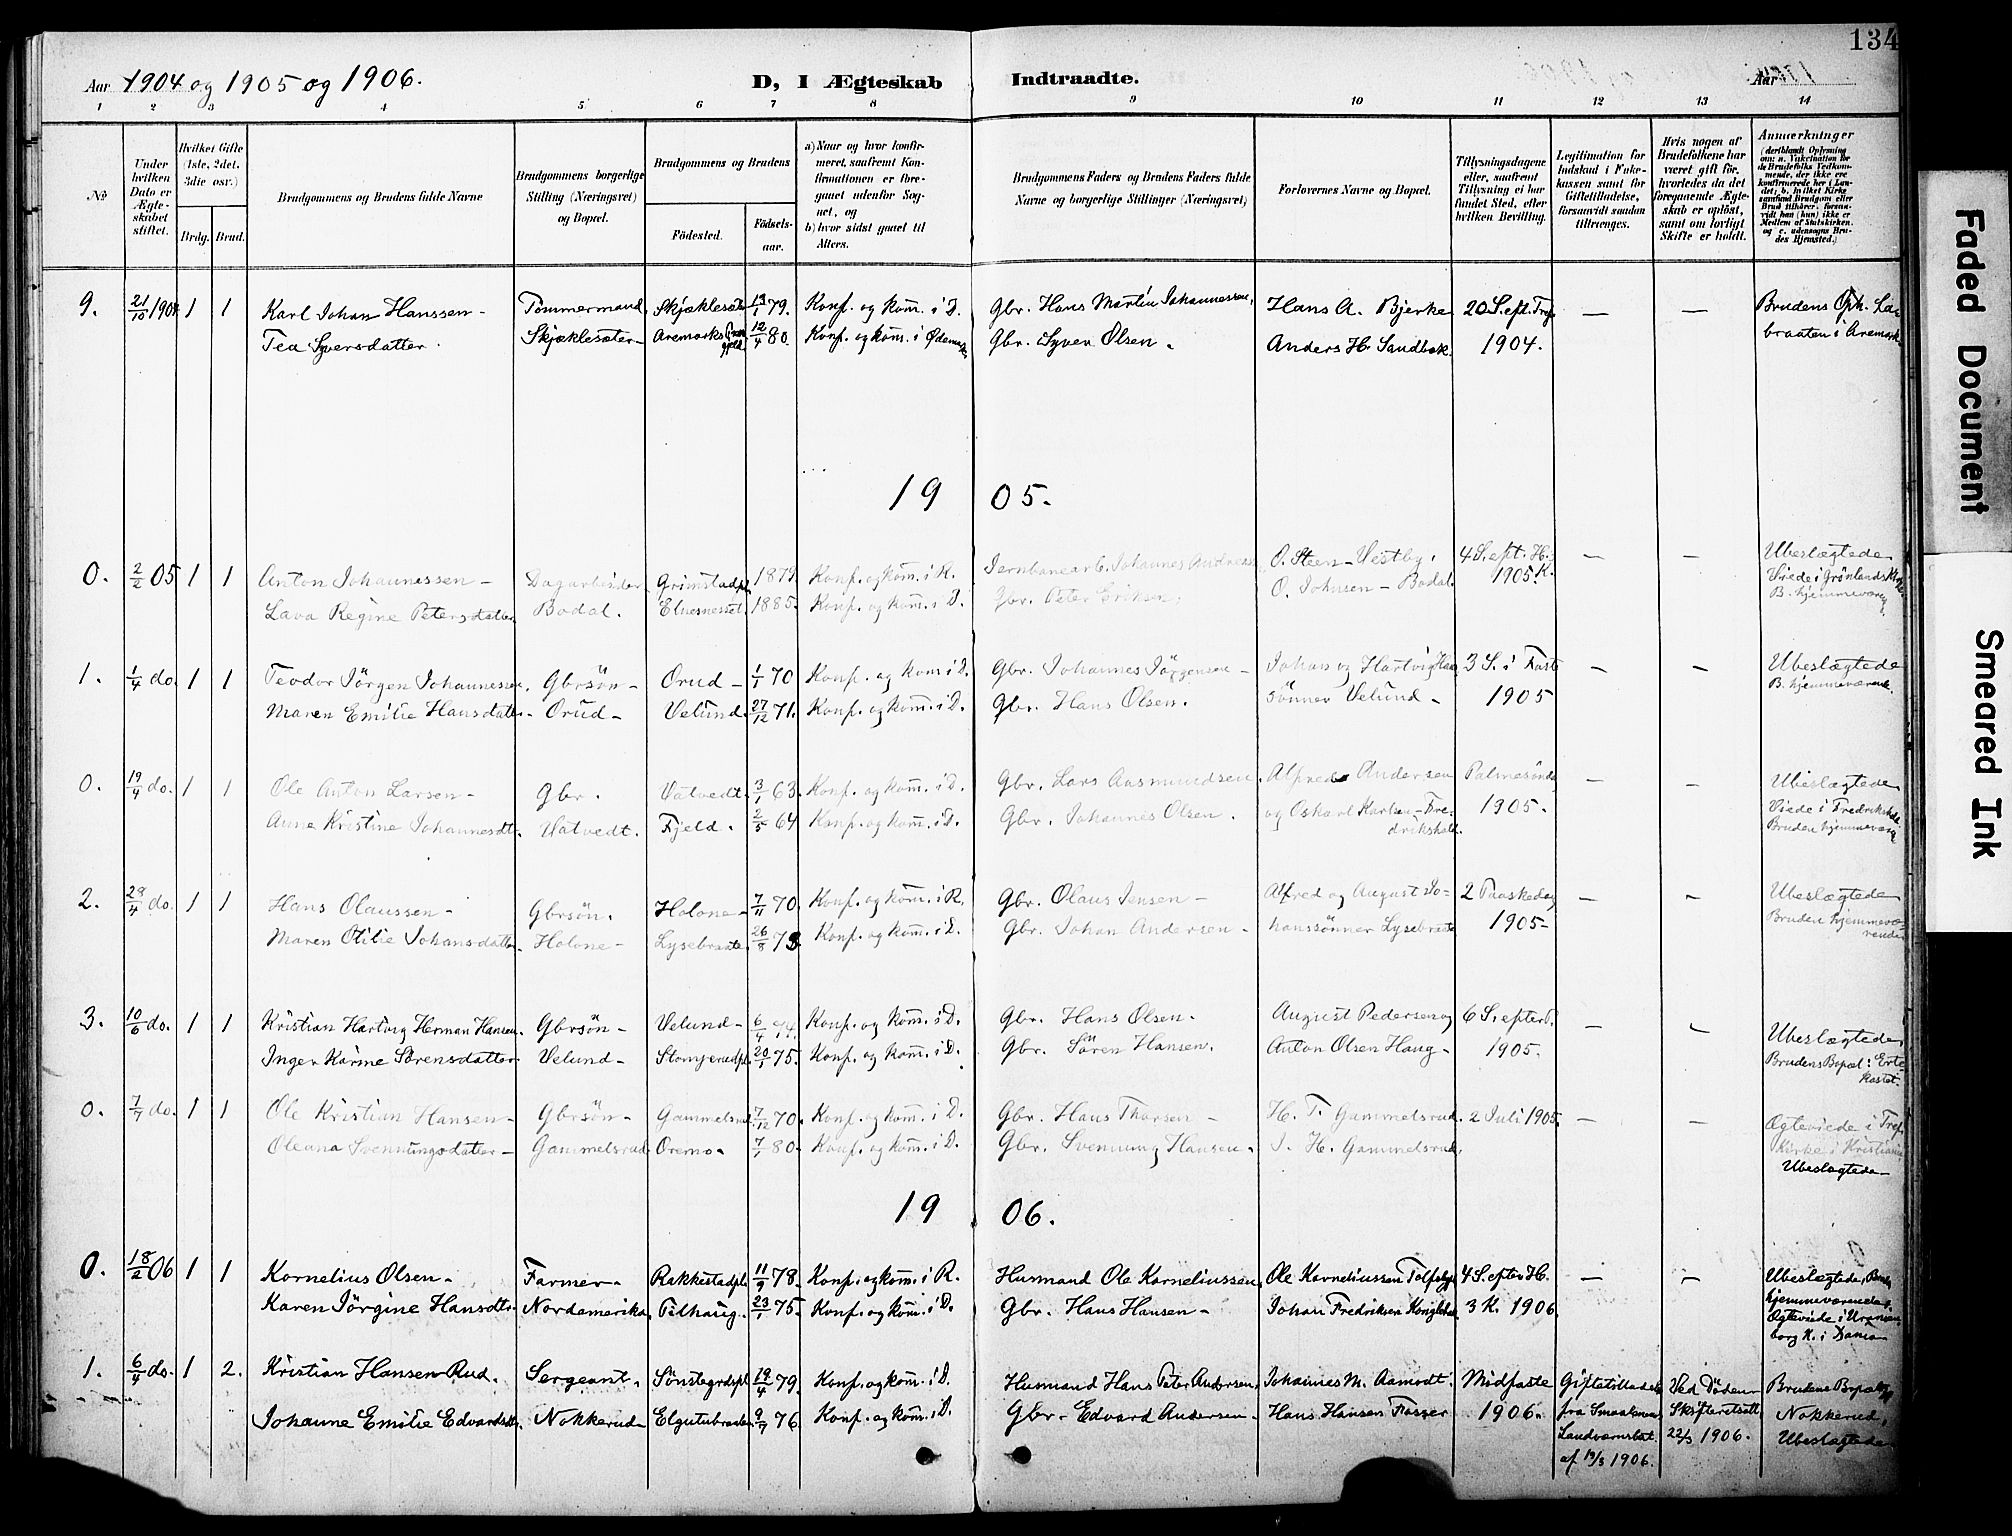 134
Aar 1904 og 1905 og 1906.
D, I Ægteskab Indtraadte.
Aar
1 2 3 4 5 6 7 8 9 10 11 12 13 14
№
Under hvilken Dato er Ægteskabet stiftet.
Hvilket Gifte (1ste, 2det, 3die osr.)
Brdg. Brud.
Brudgommens og Brudens fulde Navne
Brudgommens borgerlige Stilling (Næringsvei) og Bopæl.
Brudgommens og Brudens
Fødested.
Fødselsaar.
a) Naar og hvor konfirmeret, saafremt Konfirmationen er foregaaet udenfor Sognet, og
b) hvor sidst gaaet til Alters.
Brudgommens Faders og Brudens Faders fulde Navne og borgerlige Stillinger (Næringsvei)
Forlovernes Navne og Bopæl.
Tillysningsdagene eller, saafremt Tillysning ei har fundet Sted, efter hvilken Bevilling.
Legitimation for Indskud i Enkekassen samt for Giftetilladelse, forsaavidt saadan tiltrænges.
Hvis nogen af Brudefolkene har været gift før, hvorledes da det foregaaende Ægteskab er opløst, samt om lovligt Skifte er holdt.
Anmærkninger (deriblandt Oplysning om: a. Vakcination for de Brudefolks Vedkommende, der ikke ere konfirmerede her i Landet; b. hvilket Kirkesamfund Brudgom eller Brud tilhører, forsaavidt han (hun) ikke er Medlem af Statskirken, og c. udensogns Brudes Hjemsted.)
9. 21/10 1904 1 1 Karl Johan Hanssen - Tømmermand Skjæklesæter 79. Konf. og kom. i D. Gbr. Hans Martin Johannessen, Hans A. Bjerke 20 S. eft. Tref. — — Brudens Oph.
Tea Syversdatter. Skjæklesæter - Aremarks 12/4 80. Konf. og kom. i Gbr. Syver Olsen. Anders H. Sandbæk. 1904. braaten i Aremark
1905.
0. 2/2 05 1 1 Anton Johannessen - Dagarbeider Grimstadpl. 1879 Konf. og kom. i R. Jernbanearb. Johannes O. Steen - Vestby. 4 S. ept. H. — — Ubeslægtede
Lava Regine Petersdatter Bodal. 1885. Konf. og kom. i D. Gbr. Peter Eriksen. O. Johnsen - Bodal. 1905 K. Viede i Grønlands Kirke
B. hjemmeværg
1. 1/4 do. 1 1 Teodor Jörgen Johannessen. Gbrsön - Orud - 1/1 70 Konf. og kom i D. Gbr. Johannes Jörgensen - Johan og Hartvig 3 S. i Faste — — Ubeslægtede
Maren Emilie Hansdatter - Orud - Velund. 27/12 71. Konf. og kom. i D. Gbr. Hans Olsen. sönner Velund - 1905 B. hjemmeværende.
0. 19/4 do. 1 1 Ole Anton Larsen - Gbr. Vatvedt. 3/1 63. Konf. og kom. i D. Gbr. Lars Aasmundsen Alfred Andersen Palmesönd. — — Ubeslægtede
Anne Kristine Johannesdt. Vatvedt. Fjeld. 2/5 64 Konf. og kom. i D. Gbr. Johannes Olsen. og Oskar Karlsen - Fredrikshald. 1905. Viede i Fredrikshald
Bruden hjemmeværg
2. 24/4 do. 1 1 Hans Olaussen - Gbrsön. Holone - 7/11 70. Konf. og kom. i R. Gbr. Olaus Jensen - Alfred og August Jo- 2 Paaskedag — — Ubeslægtede
Maren Otilie Johansdatter Holone - Lysebraate 26/8 73 Konf. og kom. i D. Gbr. Johan Andersen - hanssönner Lysebraate 1905 - Bruden hjemmeværende
3. 10/6 do. 1 1 Kristian Hartvig Herman Hansen. Gbrsön - Velund - 6/4 74. Konf. og kom. i D. Gbr. Hans Olsen. August Pedersen og 6 S. efter P. — — Ubeslægtede
Inger Karine Sörensdatter Velund - Stomperudpl. 20/1 75. Konf. og kom. i D. Gbr. Sören Hansen. Anton Olsen Haug - 1905. Brudens Bopæl: Ertekastet.
0. 7/7 do. 1 1 Ole Kristian Hansen - Gbrsön - Gammelsrud 7/12 70. Konf. og kom. i D. Gbr. Hans Thorsen - H. T. Gammelsrud. 2 Juli 1905. — — Ægteviede i Tref.
Oleana Svenningsdatter - Gammelsrud Oremo. 7/1 80. Konf. og kom. i D. Gbr. Svenning Hansen. S. H. Gammelsrud. Kirke i Kristiania
Ubeslægtede -
1906.
0. 18/2 06 1 1 Kornelius Olsen - Farmer - Rakkestadpl. 11/9 78. Konf. og kom. i R. Husmand Ole Korneliussen. Ole Korneliussen 4 S. efter H. — — Ubeslægtede, Brud
Karen Jörgine Hansdt. Nordamerika. Pilhaug. 23/1 75. Konf. og kom. i D. Gbr. Hans Hansen - Johan Fredriksen 3 K. 1906. hjemmeværende.
Ægteviede i Uranienborg K. i
1. 6/4 do. 1 2. Kristian Hansen Rud. Sergeant. 19/4 79. Konf. og kom. i D. Husmand Hans Peter Andersen. Johannes M. Aamodt. Midfaste Giftetilladelse Ved Döden Brudens Bopæl
Johanne Emilie Edvardsdt. Nokkerud - Elgetubraaten 9/7 76. Konf. og kom. i D. Gbr. Edvard Andersen. Hans Hansen Fosser 1906. fra Smaalenenes Skifteretsatt. Nokkerud.
Landværnsbat. 22/3 1906. Ubeslægtede
af 19/3 1906.
Faded Document
Smeared Ink